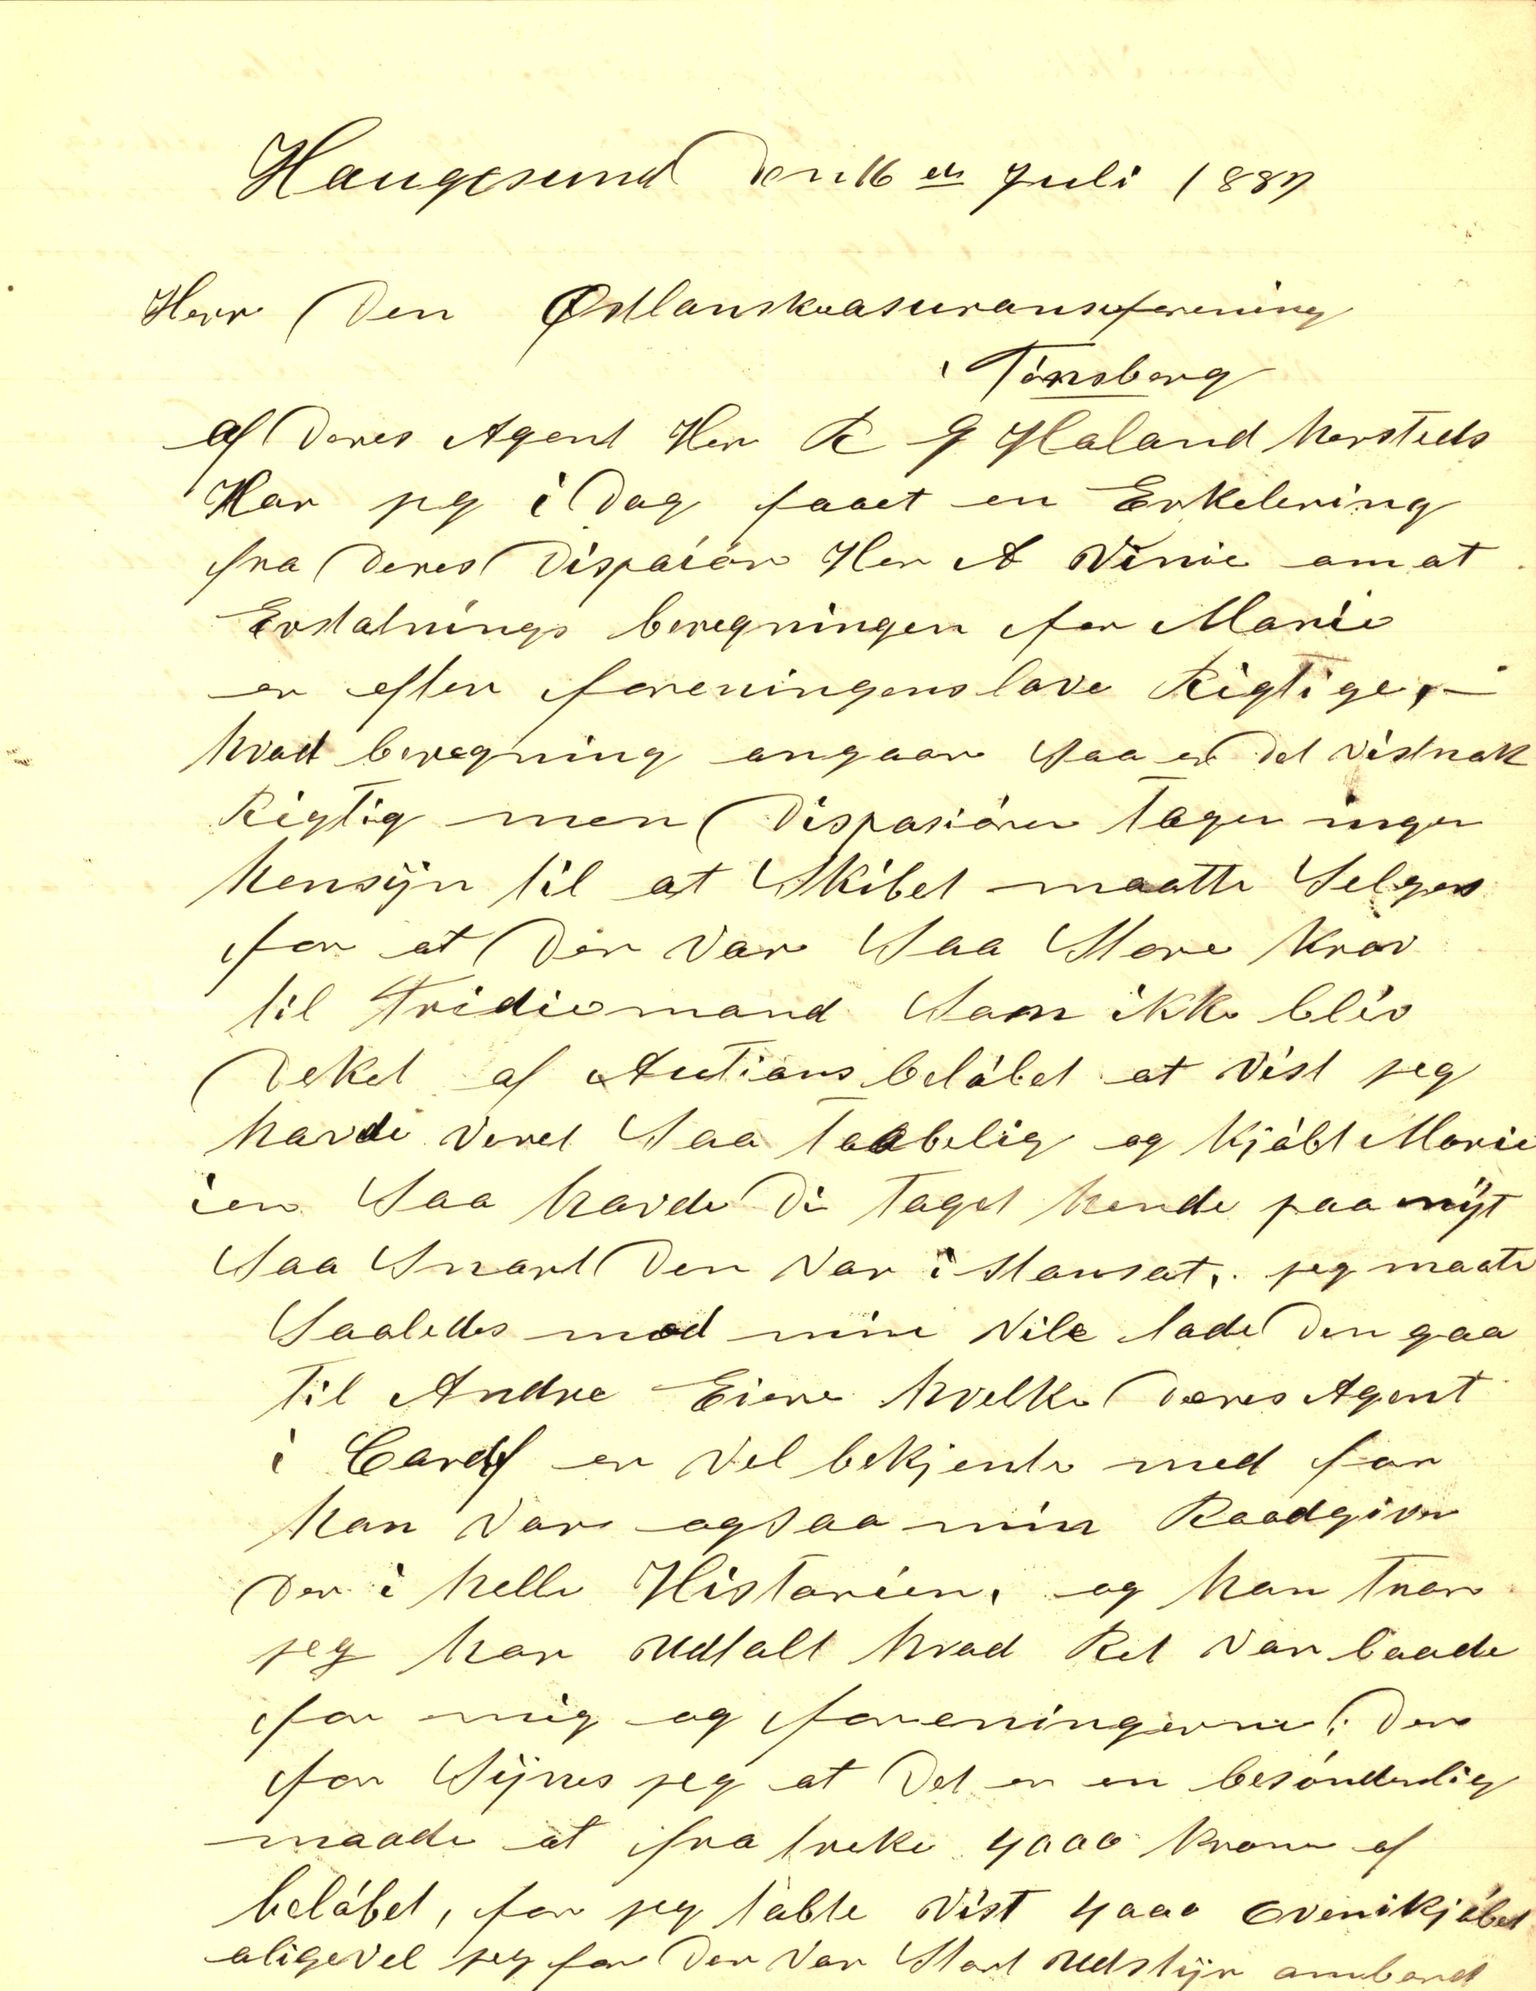 Haugesund den 16 de Juli 1887
Herr Den Østlanskeasuranseforening
i Tönsberg
af Deres Agent Her R G Haland hersteds
Har jeg i Dag faaet en Erkelering
fra Deres Dispaiör Her A Vinie om at
Erstatnings beregningen for Marie
er efter foreningens love Rigtige, –
hvad beregning angaar saa er det vistnok
Rigtig men Dispasiören Tager ingen
hensÿn til at Skibet maatte Selges
for at Der var Saa Store Krav
til Tridiemand Som ikke blev
Deket af Autions belöbet at vist jeg
havde veret Saa Taabelig og Kjöbt Marie
ien Saa havde Di Taget hende paa nÿt
Saa Snart Den var i Stansat, jeg maate
Saaledes mod min Vile lade Den gaa
Til Andre Eiere hvelke Deres Agent
i Cardif er vel bekjente med for
han var ogsaa min Raadgiver
Der i helle Historien, og han Tror
jeg har udtalt hvad Ret var baade
for mig og foreningerne; Der
for Sÿnes jeg at Det er en besönderlig
maade at fra treke 4000 Kroner af
belöbet, for jeg tabte vist 4000 ovenikjöbet
aligevel jeg for Der var Stort udstÿr ombord